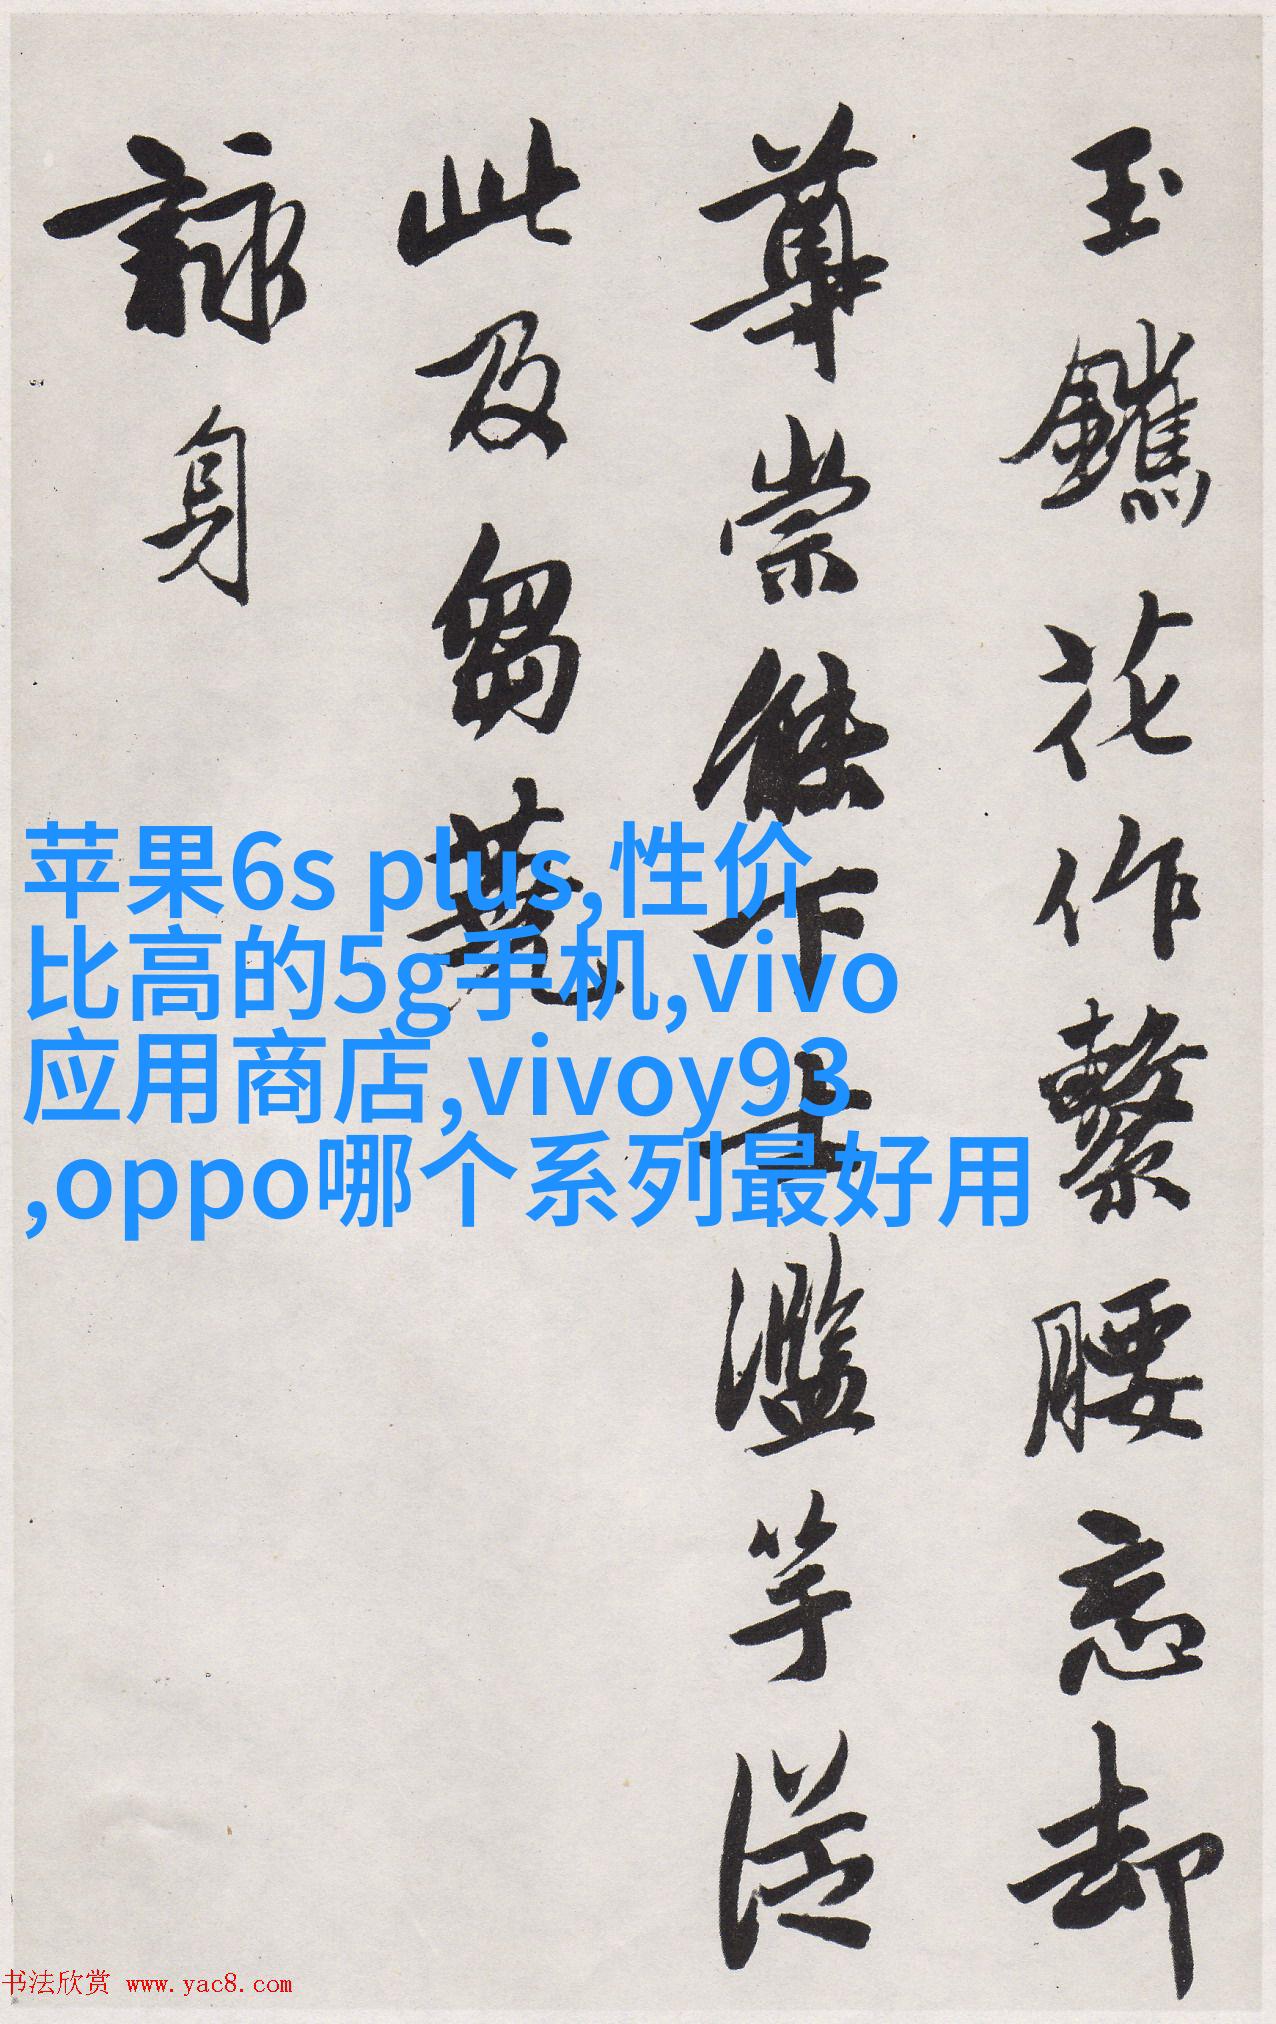 玉花作繫腰忘却
尊崇能下士濫竽從
此及芻蕘
詠身
苹果6s plus,性价
比高的5g手机,vivo
应用商店,vivoy93
,oppo哪个系列最好用
书法欣赏 www.yac8.com